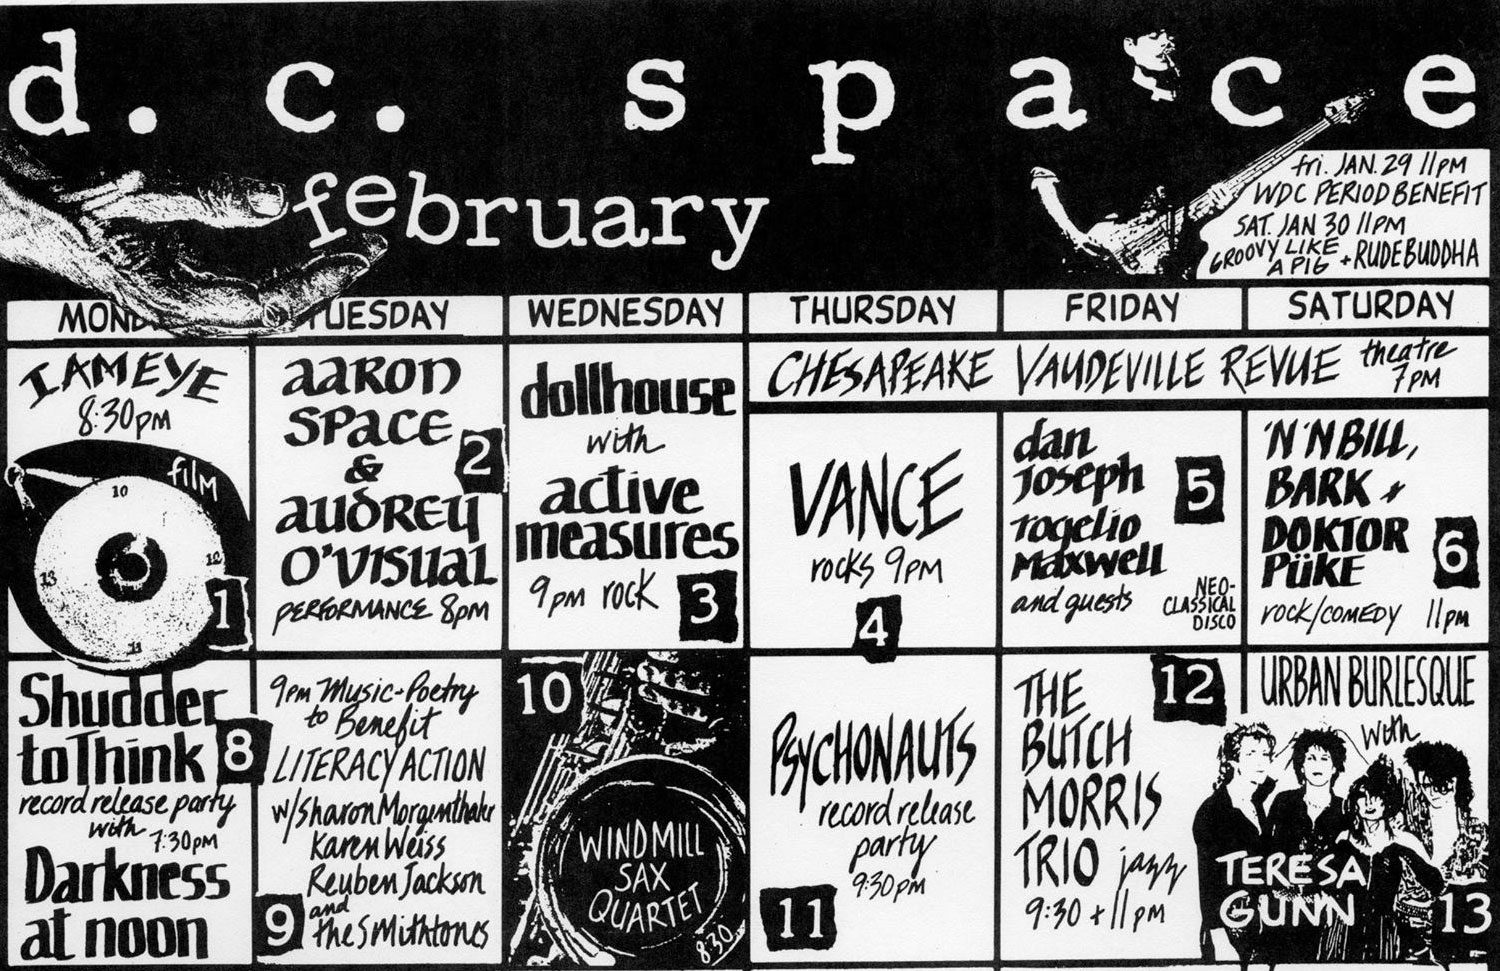 d. c. space
february
fri. JAN. 29 11PM
WDC PERIOD BENEFIT
SAT. JAN 30 11PM
GROOVY LIKE
A PIG + RUDE BUDDHA
TUESDAY
WEDNESDAY
THURSDAY
FRIDAY
SATURDAY
I AM EYE
8:30PM
film
10
12
13
11
1
aaron
space
&
audrey
o'visual
PERFORMANCE 8pm
2
dollhouse
with
active
measures
9pm rock
3
CHESAPEAKE VAUDEVILLE REVUE theatre
7PM
VANCE
rocks 9PM
4
dan
joseph
rogelio
maxwell
and guests
NEO-
CLASSICAL
DISCO
5
'N 'N BILL,
BARK +
DOKTOR
PÜKE
rock/COMEDY 11PM
6
Shudder
to Think
record release party
with
7:30PM
Darkness
at noon
8
9PM Music-Poetry
to Benefit
LITERACY ACTION
w/Sharon Morgenthaler
Karen Weiss
Reuben Jackson
and
the Smithtones
9
10
WINDMILL
SAX
QUARTET
8:30
PSYCHONAUTS
record release
party
9:30PM
11
THE
BUTCH
MORRIS
TRIO jazz
9:30 + 11 PM
12
URBAN BURLESQUE
with
TERESA
GUNN
13